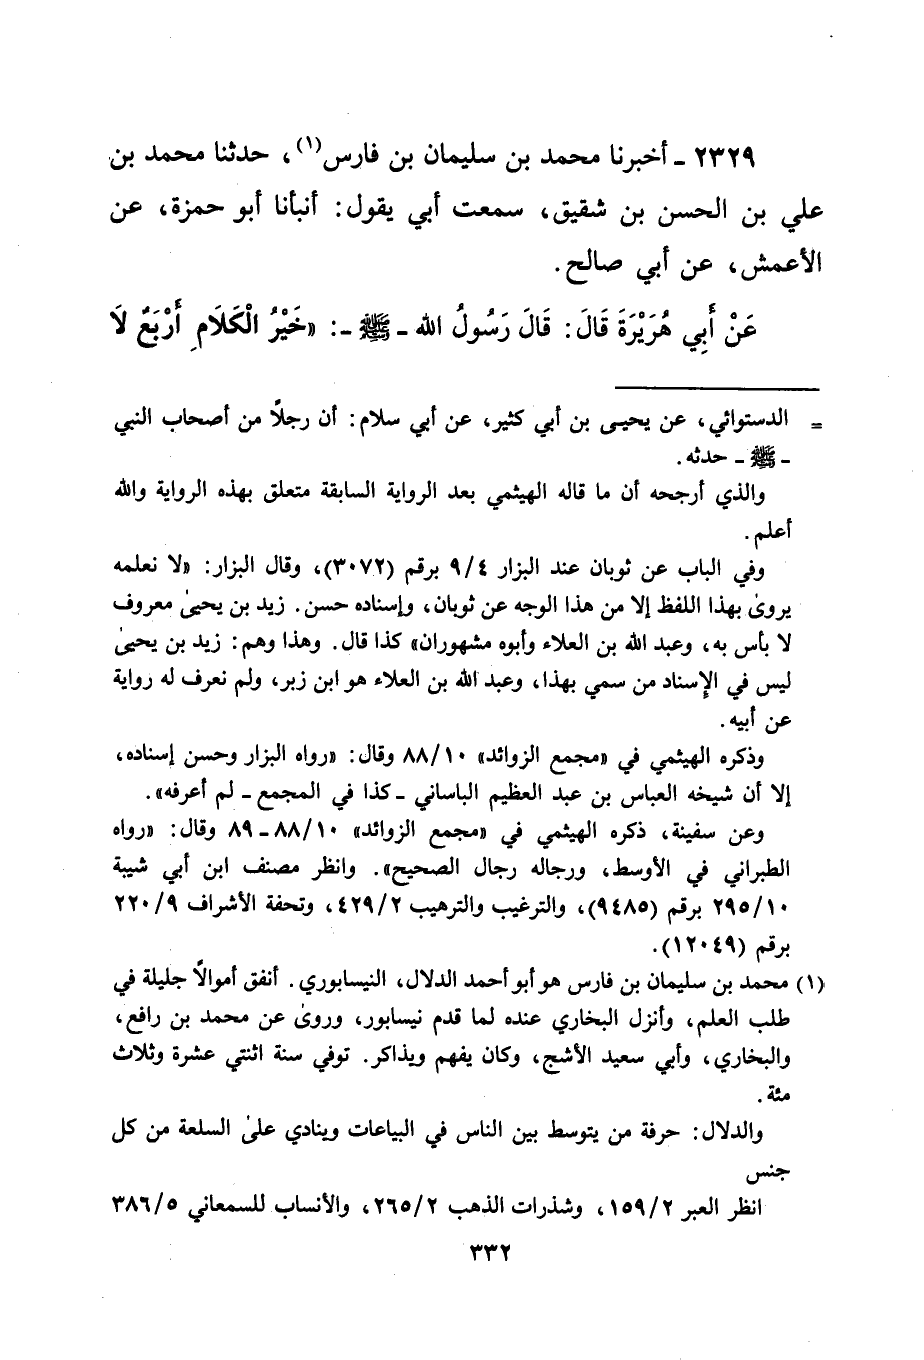 ٢٣٢٩ ـ أخبرنا محمد بن سليمان بن فارس(١)، حدثنا محمد بن
علي بن الحسن بن شقيق، سمعت أبي يقول: أنبأنا أبو حمزة، عن
الأعمش، عن أبي صالح.
عَنْ أَبِي هُرَيْرَةَ قَالَ: قَالَ رَسُولُ الله ـ ﷺ ـ: «خَيْرُ الْكَلَامِ أَرْبَعٌ لَا
= الدستوائي، عن يحيى بن أبي كثير، عن أبي سلام: أن رجلاً من أصحاب النبي
ـ ﷺ ـ حدثه.
والذي أرجحه أن ما قاله الهيثمي بعد الرواية السابقة متعلق بهذه الرواية والله
أعلم.
وفي الباب عن ثوبان عند البزار ٩/٤ برقم (٣٠٧٢)، وقال البزار: «لا نعلمه
يروىٰ بهذا اللفظ إلا من هذا الوجه عن ثوبان، وإسناده حسن. زيد بن يحيىٰ معروف
لا بأس به، وعبد الله بن العلاء وأبوه مشهوران» كذا قال. وهذا وهم: زيد بن يحيىٰ
ليس في الإِسناد من سمي بهذا، وعبد الله بن العلاء هو ابن زبر، ولم نعرف له رواية
عن أبيه.
وذكره الهيثمي في «مجمع الزوائد» ٨٨/١٠ وقال: «رواه البزار وحسن إسناده،
إلا أن شيخه العباس بن عبد العظيم الباساني ـ كذا في المجمع ـ لم أعرفه».
وعن سفينة، ذكره الهيثمي في «مجمع الزوائد» ٨٨/١٠ ـ ٨٩ وقال: «رواه
الطبراني في الأوسط، ورجاله رجال الصحيح». وانظر مصنف ابن أبي شيبة
٢٩٥/١٠ برقم (٩٤٨٥)، والترغيب والترهيب ٤٢٩/٢، وتحفة الأشراف ٢٢٠/٩
برقم (١٢٠٤٩).
(١) محمد بن سليمان بن فارس هو أبو أحمد الدلال، النيسابوري. أنفق أموالاً جليلة في
طلب العلم، وأنزل البخاري عنده لما قدم نيسابور، وروىٰ عن محمد بن رافع،
والبخاري، وأبي سعيد الأشج، وكان يفهم ويذاكر. توفي سنة اثنتي عشرة وثلاث
مئة.
والدلال: حرفة من يتوسط بين الناس في البياعات وينادي علىٰ السلعة من كل
جنس
انظر العبر ١٥٩/٢، وشذرات الذهب ٢٦٥/٢، والأنساب للسمعاني ٣٨٦/٥
٣٣٢